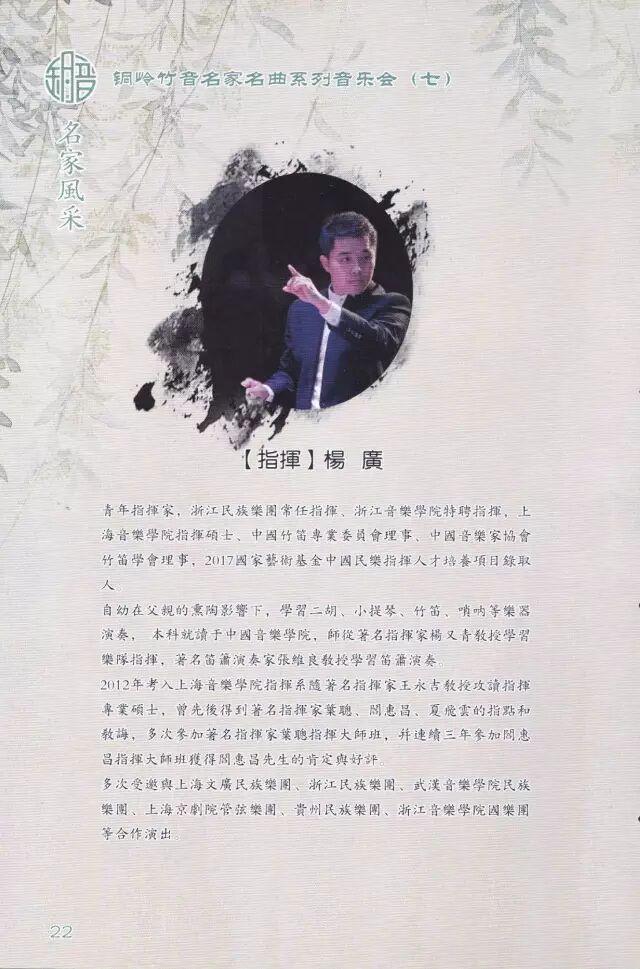 铜岭竹音名家名曲系列音乐会（七）
名家風采
【指揮】楊 廣
青年指揮家，浙江民族樂團常任指揮、浙江音樂學院特聘指揮，上
海音樂學院指揮碩士、中國竹笛專業委員會理事、中國音樂家協會
竹笛學會理事，2017國家藝術基金中國民樂指揮人才培養項目錄取
人
自幼在父親的熏陶影響下，學習二胡、小提琴、竹笛、嗩吶等樂器
演奏， 本科就讀于中國音樂學院，師從著名指揮家楊又青教授學習
樂隊指揮，著名笛簫演奏家張維良教授學習笛簫演奏。
2012年考入上海音樂學院指揮系隨著名指揮家王永吉教授攻讀指揮
專業碩士，曾先後得到著名指揮家葉聰、閻惠昌、夏飛雲的指點和
教誨，多次參加著名指揮家葉聰指揮大師班，并連續三年參加閻惠
昌指揮大師班獲得閻惠昌先生的肯定與好評。
多次受邀與上海文廣民族樂團、浙江民族樂團、武漢音樂學院民族
樂團、上海京劇院管弦樂團、貴州民族樂團、浙江音樂學院國樂團
等合作演出。
22